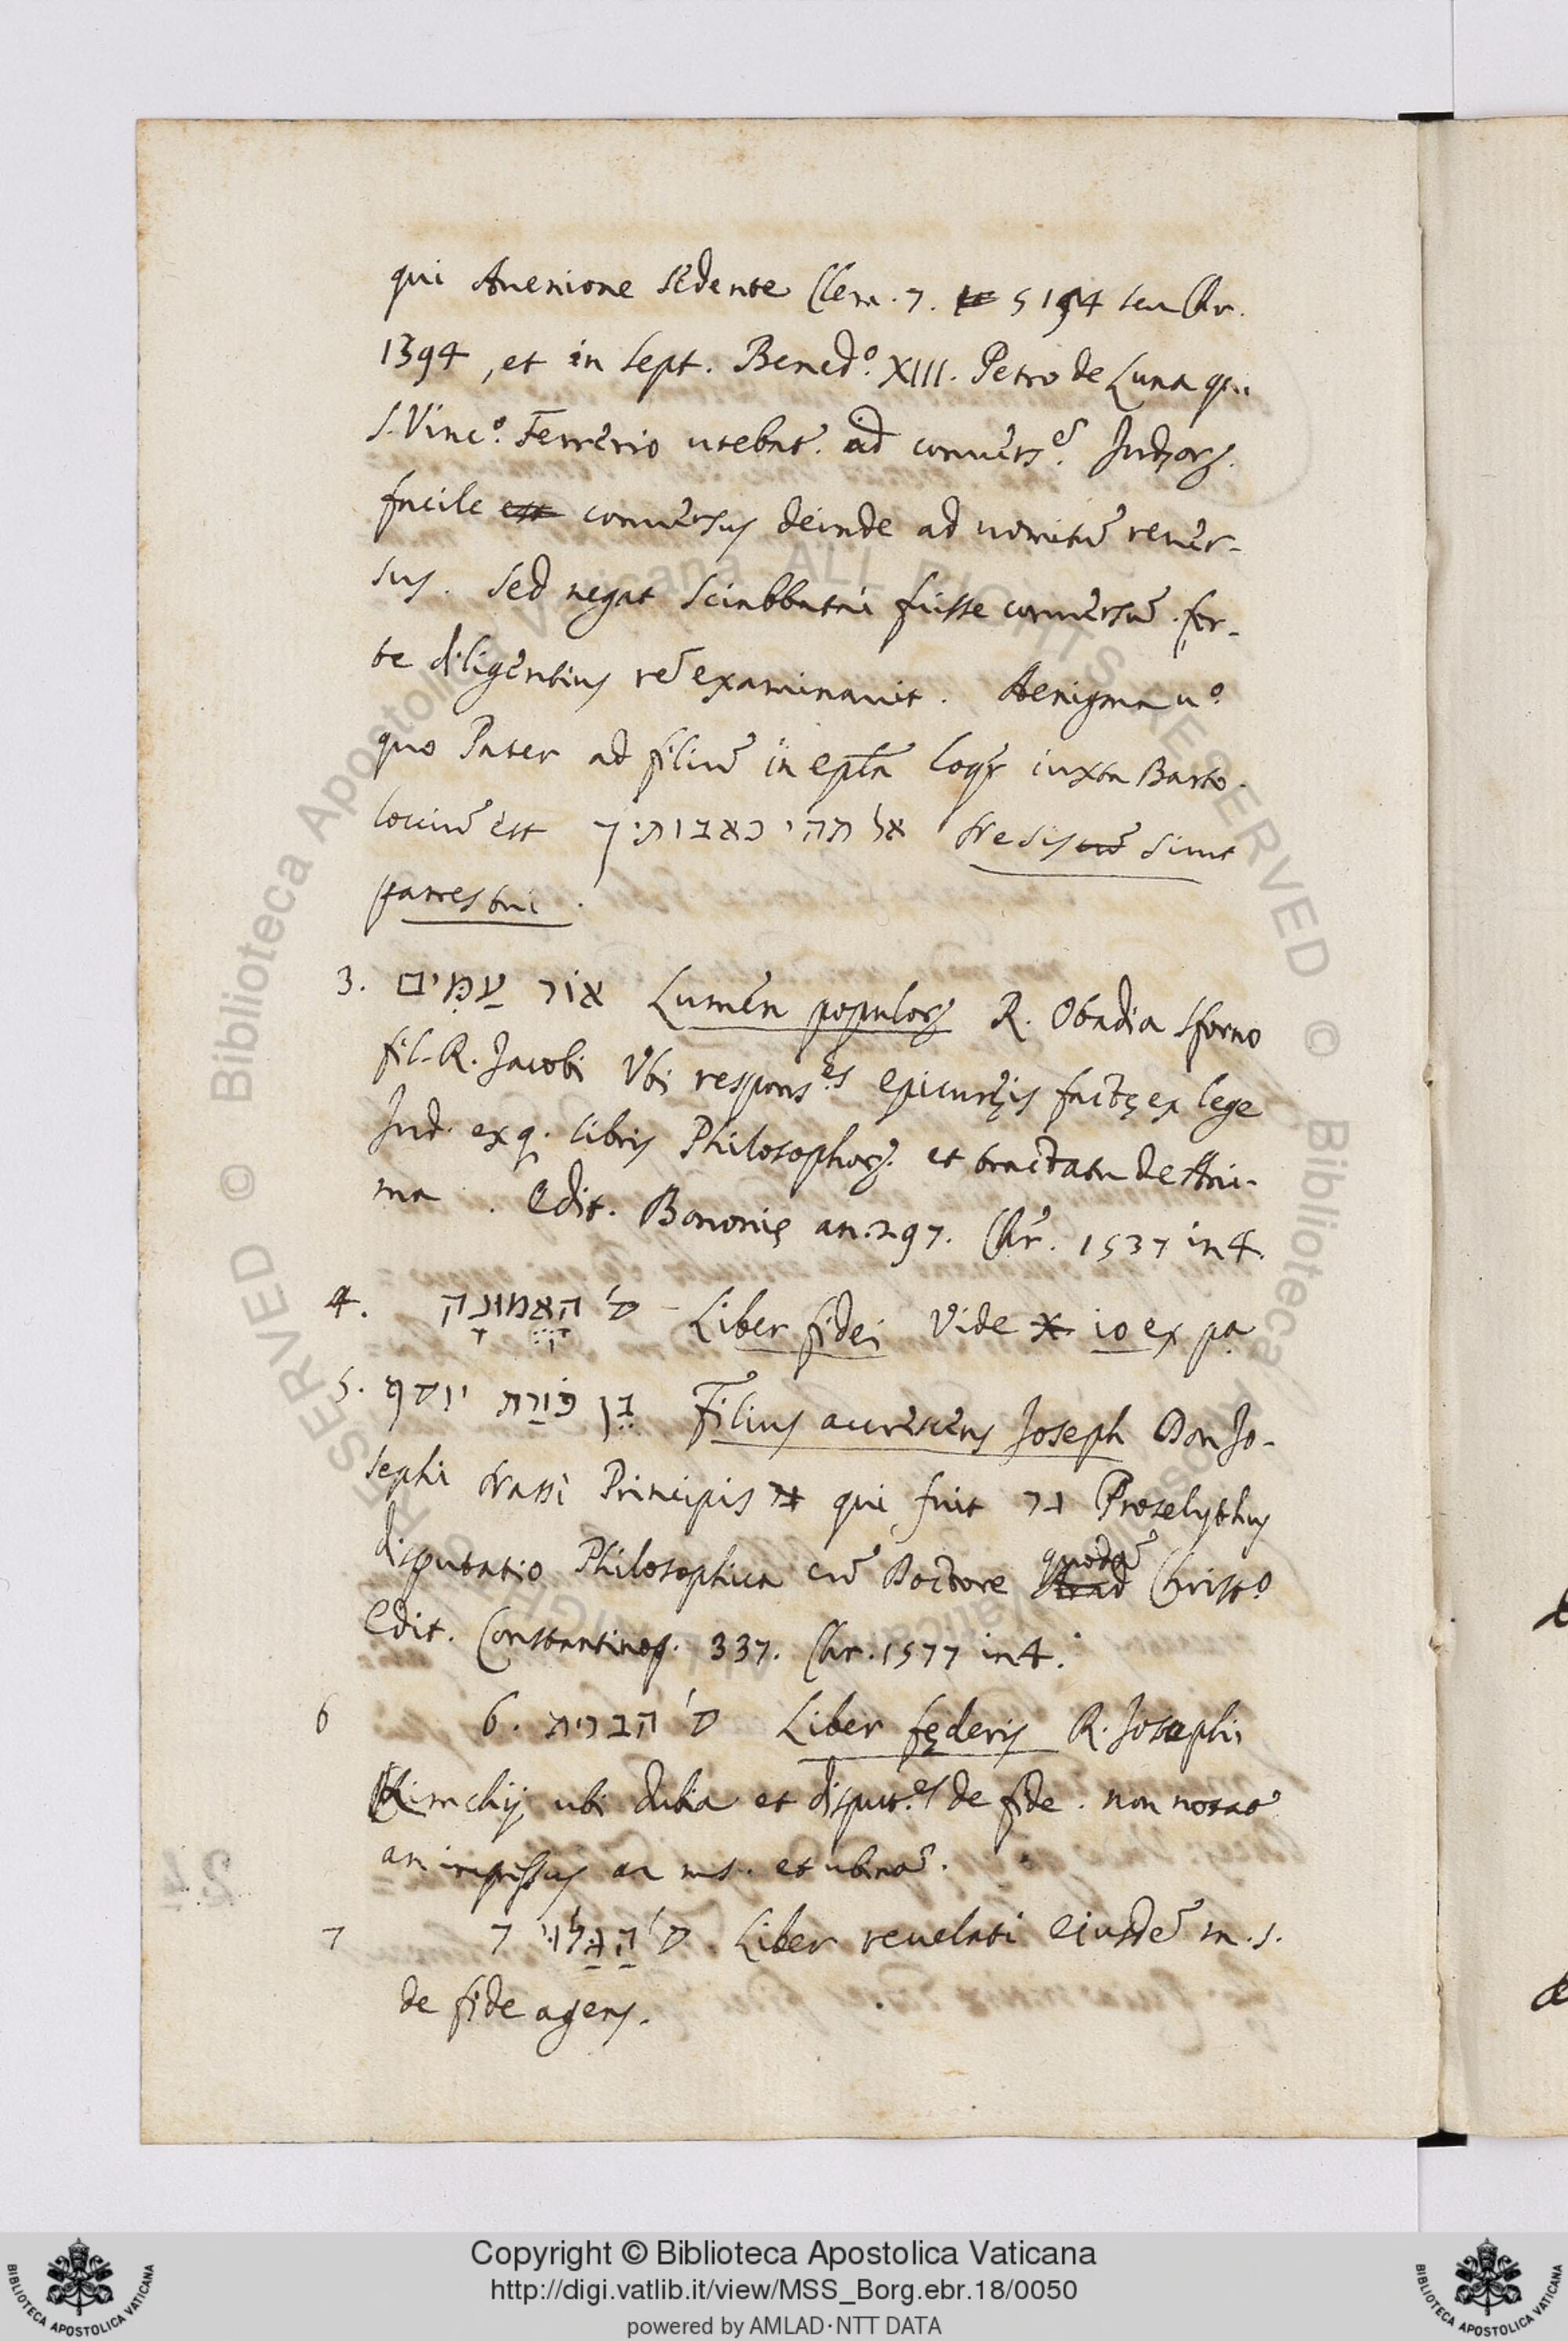 qui Auenione sedente Clem. 7. 5154 seu Chr.
1394, et in sept. Bened.º XIII. Petro de Luna qui
S. Vinc.º Ferrerio utebat̃. ad conuers.ẽ Judęorz.
facile est conuersus deinde ad uomitũ reuer-
sus. Sed negat Sciabbatai fuisse conuersũ. for-
te diligentius rẽ examinauit. Aenigma u.º
quo Pater ad filiũ in ep̃la loqr̃ iuxta Barto-
locciũ est אל תהי כאבותיך Ne sis cũ sicut
patres tui.
3. אוֹר עַמִּים Lumen populorz R. Obadia Sforno
fil. R. Jacobi Ubi respons.es epicuręis factę ex lege
Jud. ex q. libris Philosophorz. et tractatu de Ani-
ma. Edit. Bononię an. 297. Chr̃. 1537 in 4.
4. ס' האמונה Liber fidei Vide x 10 ex pa
5. בֵּן פּוֹרַת יוסף Filius accrescens Joseph Don Jo-
sephi Nassì Principis qui fuit גר Proselythus
disputatio Philosophica cũ Doctore quodã Christ.º
Edit. Constantinop. 337. Chr. 1577 in 4.
6 6. ס' הברית Liber fęderis R. Josephi
Kimchij ubi dubia et disput.es de fide. non notat̃
an impressus an ms. et ubinã.
7 7 ס' הַגָּלוּי. Liber reuelati eiusdẽ m.s.
de fide agens.
24
© Biblioteca Apostolica Vaticana ALL RIGHTS RESERVED
Copyright © Biblioteca Apostolica Vaticana
http://digi.vatlib.it/view/MSS_Borg.ebr.18/0050
powered by AMLAD·NTT DATA
BIBLIOTECA APOSTOLICA VATICANA
BIBLIOTECA APOSTOLICA VATICANA